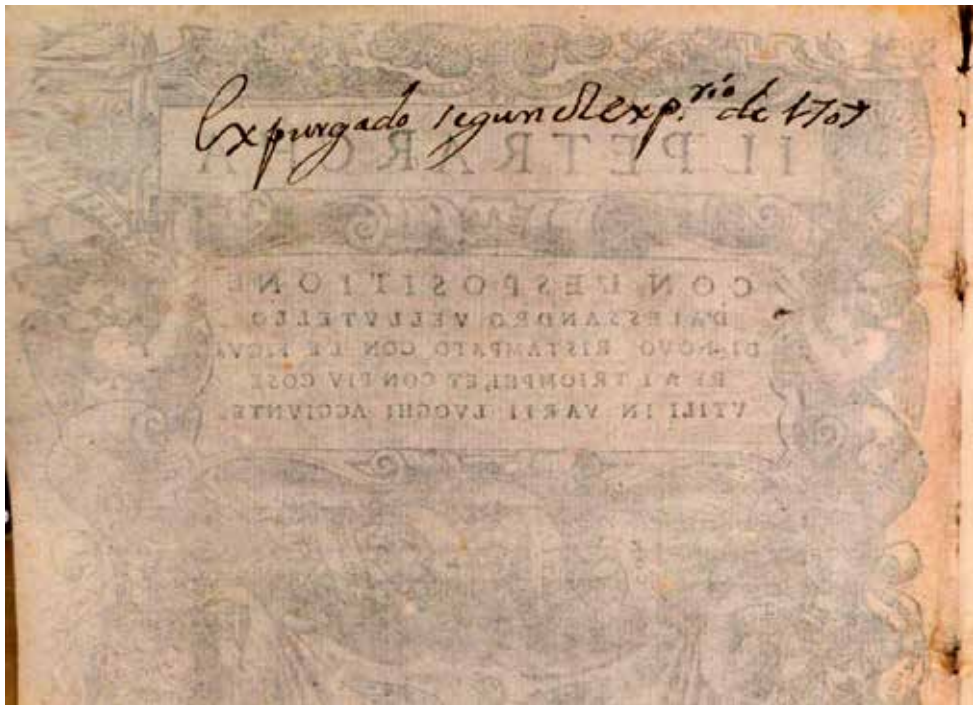 Expurgado segun el exp.rio de 1707
IL PETRARCHA
CON L'ESPOSITIONE
D'ALESSANDRO VELLVTELLO
DI NOVO RISTAMPATO CON LE FIGVRE
AI TRIOMPHI, ET CON PIV COSE
VTILI IN VARII LVOGHI AGGIVNTE